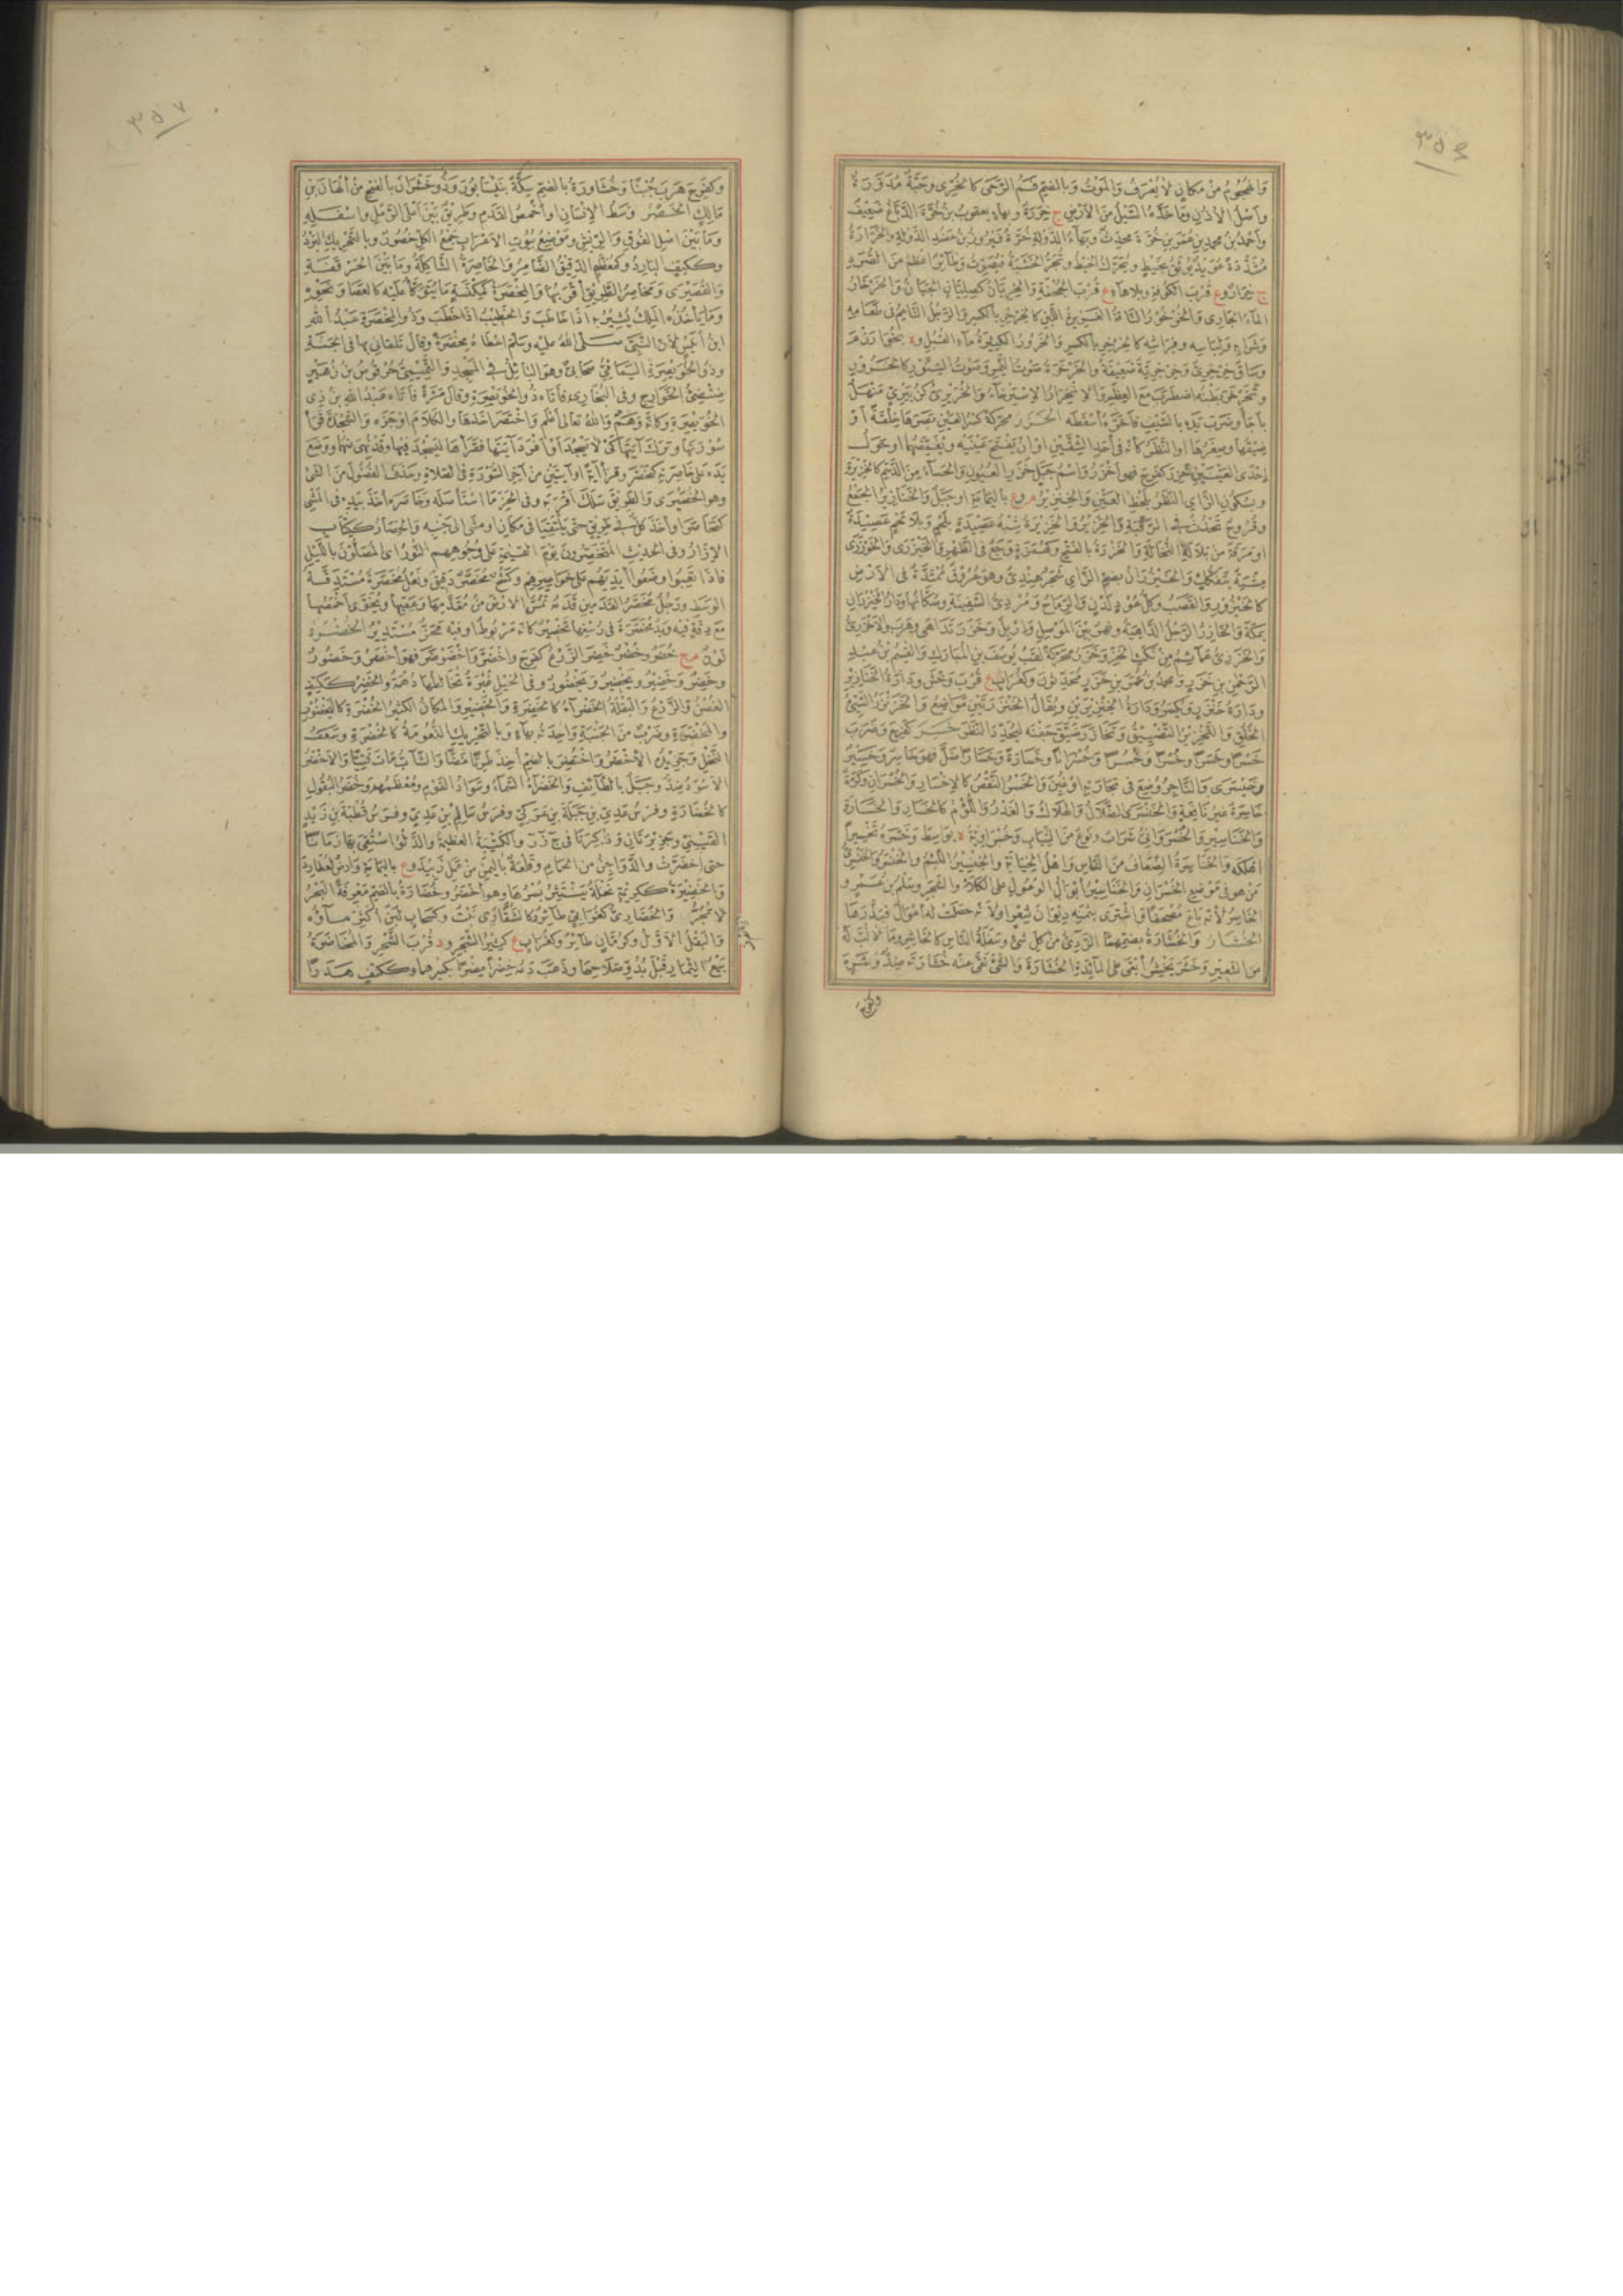 ٣٥٤
والهجوم من مكان لا يعرف والموت وبالضم فم الرحى كالخرى وحبة مدورة
واصل الاذن وما خده السيل من الارض ج خررة وبهاء يعقوب بن خرة الدباغ ضعيف
واحمد بن محمد بن عمر بن خرة محدث وبهاء الدولة خرة فيروز بن عضد الدولة والخرارة
مشددة عويد يوثق بخيط ويحرك الخيط وتجر الخشبة فيصوت وطائر اعظم من الصرد
ج خرار وع قرب الكوفة وبلا هاء ع قرب الجحفة والخريان كصليان الجبان والخرخار
الماء الجارى والخرخور الناقة الغزيرة اللبن كالخرخر بالكسر والرجل الناعم فى طعامه
وشرابه ولباسه وفراشه كالخرخر بالكسر والخرور الكثيرة ماء القبل و بخوارزم
وساق خرخرى وخرخرية ضعيفة والخرخرة صوت النمر وصوت السنور كالخرور
وتخرخر بطنه اضطرب مع العظم والانخرار الاسترخاء والخريرى كزبيرى منهل
باجأ وضرب يده بالسيف فاخره أسقطه الخزر محركة كسر العين بصرها خلقة أو
ضيقها وصغرها او النظر كأنه فى أحد الشقين او ان يفتح عينيه ويغمضهما او حول
احدى العينين خزر كفرح فهو أخزر واسم جيل خزر العيون والحساء من الدسم كالخزيرة
وبسكون الزاى النظر بلحظ العين والخنزير م وع باليمامة او جبل والخنازير الجمع
وقروح تحدث فى الرقبة والخزير والخزيرة شبه عصيدة بلحم وبلا لحم عصيدة
او مرقة من بلالة النخالة والخزرة بالفتح وكهمزة وجع فى الظهر والخيزرى والخوزرى
مشية بتفكك والخيزران بضم الزاى شجر هندى وهو عروق ممتدة فى الارض
كالخيزور والقصب وكل عود لدن والرماح ومردى السفينة وسكانها ودار الخيزران
بمكة والخازر الرجل الداهية ونهر بين الموصل واربل وخزر تداهى وهرب والاخزرى
والخزرى عمائم من نكث الخز وخزر محركة لقب يوسف بن المبارك والقسم بن عبد
الرحمن بن خزر ومحمد بن عمر بن خزر محدثون وكغراب ع قرب وخش ودارة الخنازير
ودارة خنزر ويكسر ودارة الخنزيرين ويقال الخنزرتين مواضع والخزنزر السيئ
الخلق والتخزير التضييق وتخازر ضيق جفنه ليحدد النظر خسر كفرح وضرب
خسرا وخسرا وخسرا وخسرا وخسرانا وخسارة وخسارا ضل فهو خاسر وخسير
وخيسرى والتاجر وضع فى تجارته او غبن والخسر النقص كالاخسار والخسران وكرة
خاسرة غير نافعة والخنسرى الضلال والهلاك والغدر واللؤم كالخسار والخسارة
والخناسير والخسروانى شراب ونوع من الثياب وخسراوية بواسط وخسره تخسيرا
أهلكه والخناسرة الضعاف من الناس واهل الخيانة والخنسير اللئيم والخنسر والخنسرى
من هو فى موضع الخسران والخناسير أبوال الوعول على الكلاء والشجر وسلم بن عمرو
الخاسر لأنه باع مصحفا واشترى بثمنه ديوان شعر او لأنه حصلت له أموال فبذرها
الخشار والخشارة بضمهما الردئ من كل شئ وسفلة الناس كالخاشر وما لا لب له
من الشعير وخشر يخشر أبقى على المائدة الخشارة والشئ نقى عنه خشارته ضد وشره
وكفرح
٣٥٧
وكفرح هرب جبنا وخشاورة بالضم سكة بنيسابور وذو خشران بالفتح من ألهان بن
مالك الخصر وسط الانسان وأخمص القدم وطريق بين أعلى الرمل واسفله
وما بين اصل الفوق والريش وموضع بيوت الاعراب جمع الكل خصور وبالتحريك البرد
وككتف البارد وكمعظم الدقيق الضامر والخاصرة الشاكلة وما بين الحرقفة
والقصيرى ومخاصر الطريق أقربها والمخصرة كمكنسة ما يتوكأ عليه كالعصا ونحوه
وما يأخذه الملك يشير به اذا خاطب والخطيب اذا خطب وذو المخصرة عبد الله
ابن أنيس لأن النبى صلى الله عليه وسلم اعطاه مخصرة وقال تلقانى بها فى الجنة
وذو الخويصرة اليمامى صحابى وهو البائل فى المسجد والتميمى حرقوص بن زهير
ضئضئ الخوارج وفى البخارى فأتاه ذو الخويصرة وقال مرة فأتاه عبد الله بن ذى
الخويصرة وكأنه وهم والله تعالى اعلم واختصر اخذها والكلام اوجزه والسجدة قرأ
سورتها وترك آيتها كى لا يسجد أو أفرد آيتها فقرأها ليسجد فيها وقد نهى عنهما ووضع
يده على خاصرته كتخصر وقرأ آية او آيتين من آخر السورة فى الصلاة وحذف الفضول من الشئ
وهو الخصيرى والطريق سلك اقربه وفى الحز ما استأصله وخاصره أخذ بيده فى المشى
كتخاصرا وأخذ كل فى طريق حتى يلتقيا فى مكان او مشى الى جنبه والخصار ككتاب
الازار وفى الحديث المتخصرون يوم القيمة على وجوههم النور اى المصلون بالليل
فاذا تعبوا وضعوا أيديهم على خواصرهم وكشح مخصر دقيق ونعل مخصرة مستدقة
الوسط ورجل مخصر القدمين قدمه تمس الارض من مقدمها وعقبها ويخوى أخمصها
مع دقة فيه ويد مخصرة فى رسغها تخصير كأنه مربوط او فيه محز مستدير الخضرة
لون م ج خضر وخضر خضر الزرع كفرح واخضر واخضوضر فهو أخضر وخضور
وخضر وخضير ويخضير ويخضور وفى الخيل غبرة تخالطها دهمة والخضر ككتف
الغصن والزرع والبقلة الخضراء كالخضرة والخضير والمكان الكثير الخضرة كاليخضور
والمخضرة وضرب من الجنبة واحدته بهاء وبالتحريك النعومة كالخضرة وسعف
النخل وجريده الأخضر واختضر بالضم أخذ طريا غضا والشاب مات فتيا والاخضر
الاسود ضد وجبل بالطائف والخضراء السماء وسواد القوم ومعظمهم وخضر البقول
كالخضارة وفرس عدى بن جبلة بن عركى وفرس سالم بن عدى وفرس قطبة بن زيد
القينى وجزيرتان وذكرتا فى ج ز ر والكتيبة العظيمة والدلو استقى بها زمانا
حتى اخضرت والدواجن من الحمام وقلعة باليمن من عمل زبيد وع باليمامة وارض لعطارد
والخضيرة ككريمة نخلة ينتثر بسرها وهو أخضر وخضارة بالضم معرفة البحر
لا تجرى والخضارى كغرابى طائر كالشقارى نبت وكسحاب لبن اكثر ماؤه
والبقل الاول وكرمان طائر وكغراب ع كثير الشجر ود قرب الشحر والمخاضرة
بيع الثمار قبل بدو صلاحها وذهب دمه خضرا مضرا بكسرهما وككتف هدرا